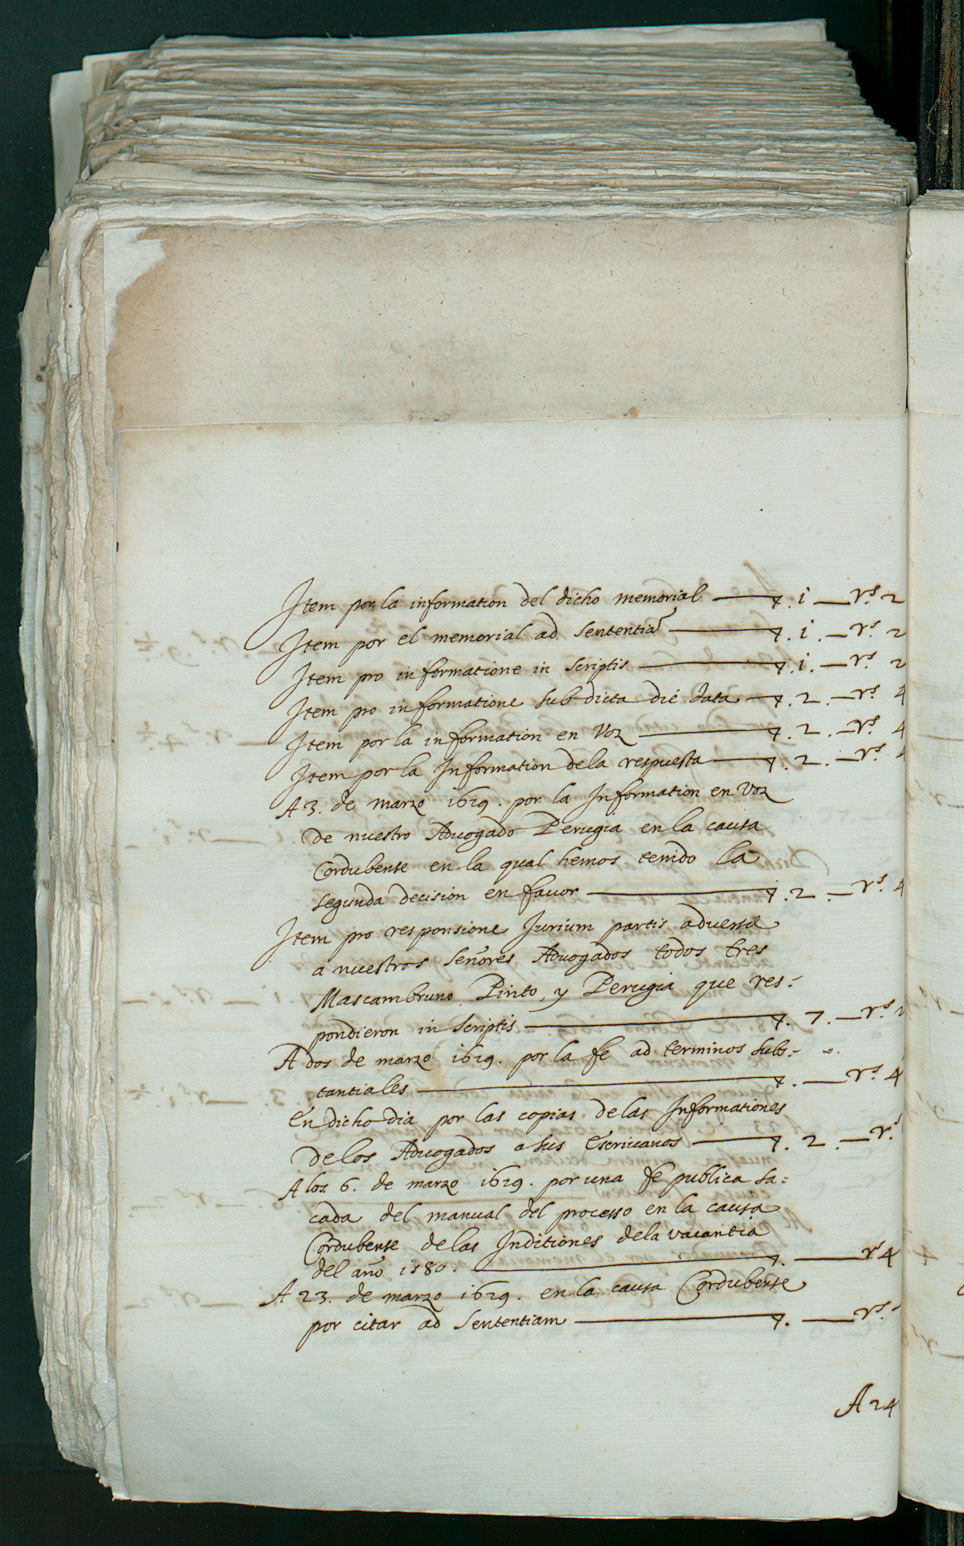 Item por la information del dicho memorial — 7. i — rs 2
Item por el memorial ad sententiã — 7. i. — rs 2
Item pro informatione in scriptis — 7. i. — rs 2
Item pro informatione sub dicta die data — 7. 2. — rs 4
Item por la information en Voz — 7. 2. — rs 4
Item por la Information dela respuesta — 7. 2. — rs
A 3. de marzo 1619. por la Information en Voz
de nuestro Advogado Perugia en la causa
Cordubense en la qual hemos tenido la
segunda decision en favor — 7. 2. — rs 4
Item pro responsione Iurium partis adversæ
a nuestros señores Advogados todos tres
Mascambruno, Pinto, y Perugia que res-
pondieron in scriptis — 7. 7. — rs
A dos de marzo 1619. por la fe ad terminos subs-
tantiales — 7. — rs 4
En dicho dia por las copias delas Informationes
delos Advogados a sus Escrivanos — 7. 2. — rs
A los 6. de marzo 1619. por una fe publica sa-
cada del manual del processo en la causa
Cordubense delas Inditiones dela vacantia
del año 1580. — 7. — rs 4
A 23. de marzo 1619. en la causa Cordubense
por citar ad sententiam — 7. — rs
A 24